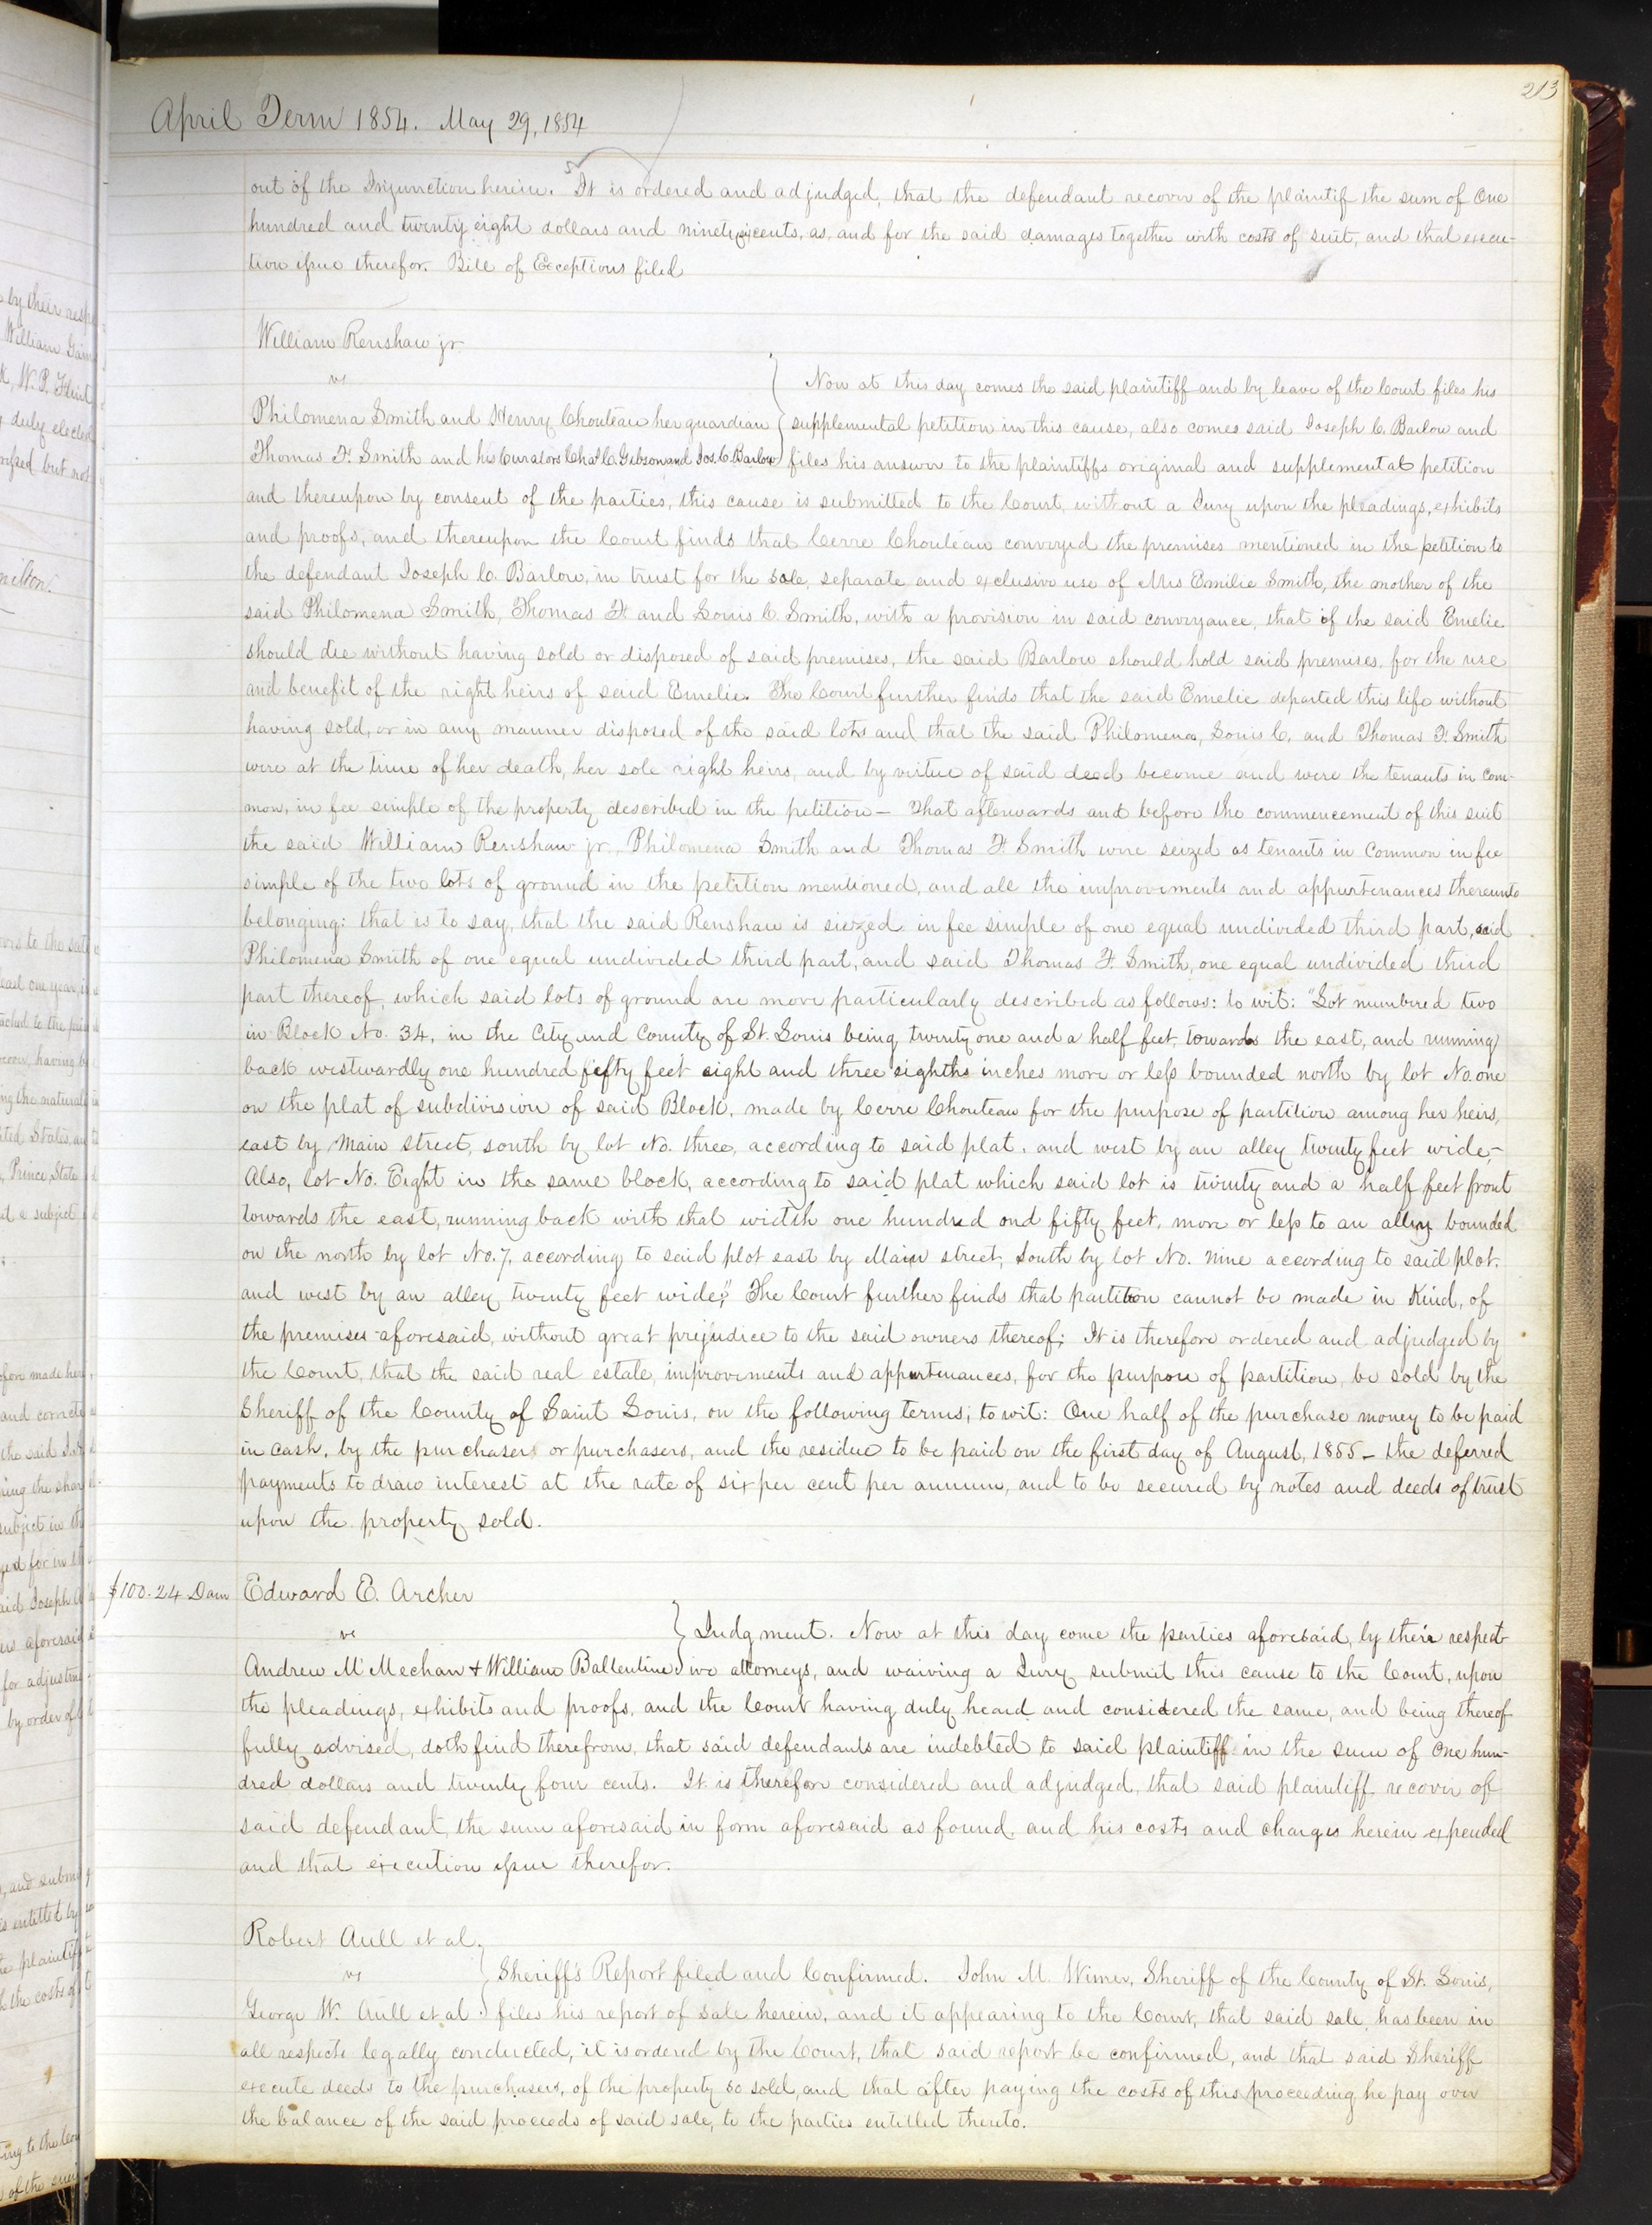 213
April Term 1854. May 29, 1854
out of the Injunction herein. It is ordered and adjudged, that the defendant recover of the plaintif the sum of One
hundred and twenty eight dollars and ninety cents, as, and for the said damages together with costs of suit, and that execu-
tion issue therefor. Bill of Exceptions filed
William Renshaw jr
vs
Philomena Smith and Henry Chouteau her guardian
Thomas F. Smith and his Curators Chas C. Gibson and Jos. C. Barlow
Now at this day comes the said plaintiff and by leave of the Court files his
supplemental petition in this cause, also comes said Joseph C. Barlow and
files his answer to the plaintiffs original and supplemental petition
and thereupon by consent of the parties, this cause is submitted to the Court, without a Jury upon the pleadings, exhibits
and proofs, and thereupon the Court finds that Cerre Chouteau conveyed the premises mentioned in the petition to
the defendant Joseph C. Barlow, in trust for the sole, separate and exclusive use of Mrs Emilie Smith, the mother of the
said Philomena Smith, Thomas F. and Louis C Smith, with a provision in said conveyance, that if the said Emelie
should die without having sold or disposed of said premises, the said Barlow should hold said premises, for the use
and benefit of the right heirs of said Emelie. The Court further finds that the said Emelie departed this life without
having sold, or in any manner disposed of the said lots and that the said Philomena, Louis C. and Thomas F. Smith
were at the time of her death, her sole right heirs, and by virtue of said deed become and were the tenants in com-
mon, in fee simple of the property described in the petition — That afterwards and before the commencement of this suit
the said William Renshaw jr, Philomena Smith and Thomas F. Smith were seized as tenants in Common in fee
simple of the two lots of ground in the petition mentioned, and all the improvements and appurtenances thereunto
belonging: that is to say, that the said Renshaw is siezed in fee simple of one equal undivided third part, said
Philomena Smith of one equal undivided third part, and said Thomas F. Smith, one equal undivided third
part thereof, which said lots of ground are more particularly described as follows: to wit: "Lot numbered two
in Block No. 34, in the City and County of St. Louis being twenty one and a half feet, towards the east, and running
back westwardly one hundred fifty feet eight and three eighths inches more or less bounded north by lot No. one
on the plat of subdivision of said Block, made by Cerre Chouteau for the purpose of partition among her heirs,
east by Main street, south by lot No. three, according to said plat, and west by an alley twenty feet wide,-
Also, lot No. Eight in the same block, according to said plat which said lot is twenty and a half feet front
towards the east, running back with that width one hundred and fifty feet, more or less to an alley bounded
on the north by lot No. 7, according to said plot east by Main street, South by lot No. nine according to said plot.
and west by an alley twenty feet wide;" The Court further finds that partition cannot be made in Kind, of
the premises aforesaid, without great prejudice to the said owners thereof; It is therefore ordered and adjudged by
the Court, that the said real estate, improvements and appurtenances, for the purpose of partition, be sold by the
Sheriff of the County of Saint Louis, on the following terms; to wit: One half of the purchase money to be paid
in cash, by the purchasers or purchasers, and the residue to be paid on the first day of August, 1855 — the deferred
payments to draw interest at the rate of six per cent per annum, and to be secured by notes and deeds of trust
upon the property sold.
$100.24 Dam
Edward E. Archer
vs
Andrew McMechan & William Ballentine
Judgment. Now at this day come the parties aforesaid, by their respect-
ive attorneys, and waiving a Jury submit this cause to the Court, upon
the pleadings, exhibits and proofs, and the Court having duly heard and considered the same, and being thereof
fully advised, doth find therefrom, that said defendants are indebted to said plaintiff in the sum of One hun-
dred dollars and twenty four cents. It is therefore considered and adjudged, that said plaintiff recover of
said defendant, the sum aforesaid in form aforesaid as found, and his costs and charges herein expended
and that execution issue therefor.
Robert Aull et al.
vs
George W. Aull et al
Sheriff's Report filed and Confirmed. John M. Wimer, Sheriff of the County of St. Louis,
files his report of sale herein, and it appearing to the Court, that said sale, has been in
all respects legally conducted, it is ordered by the Court, that said report be confirmed, and that said Sheriff
execute deeds to the purchasers, of the property so sold, and that after paying the costs of this proceeding he pay over
the balance of the said proceeds of said sale, to the parties entitled thereto.